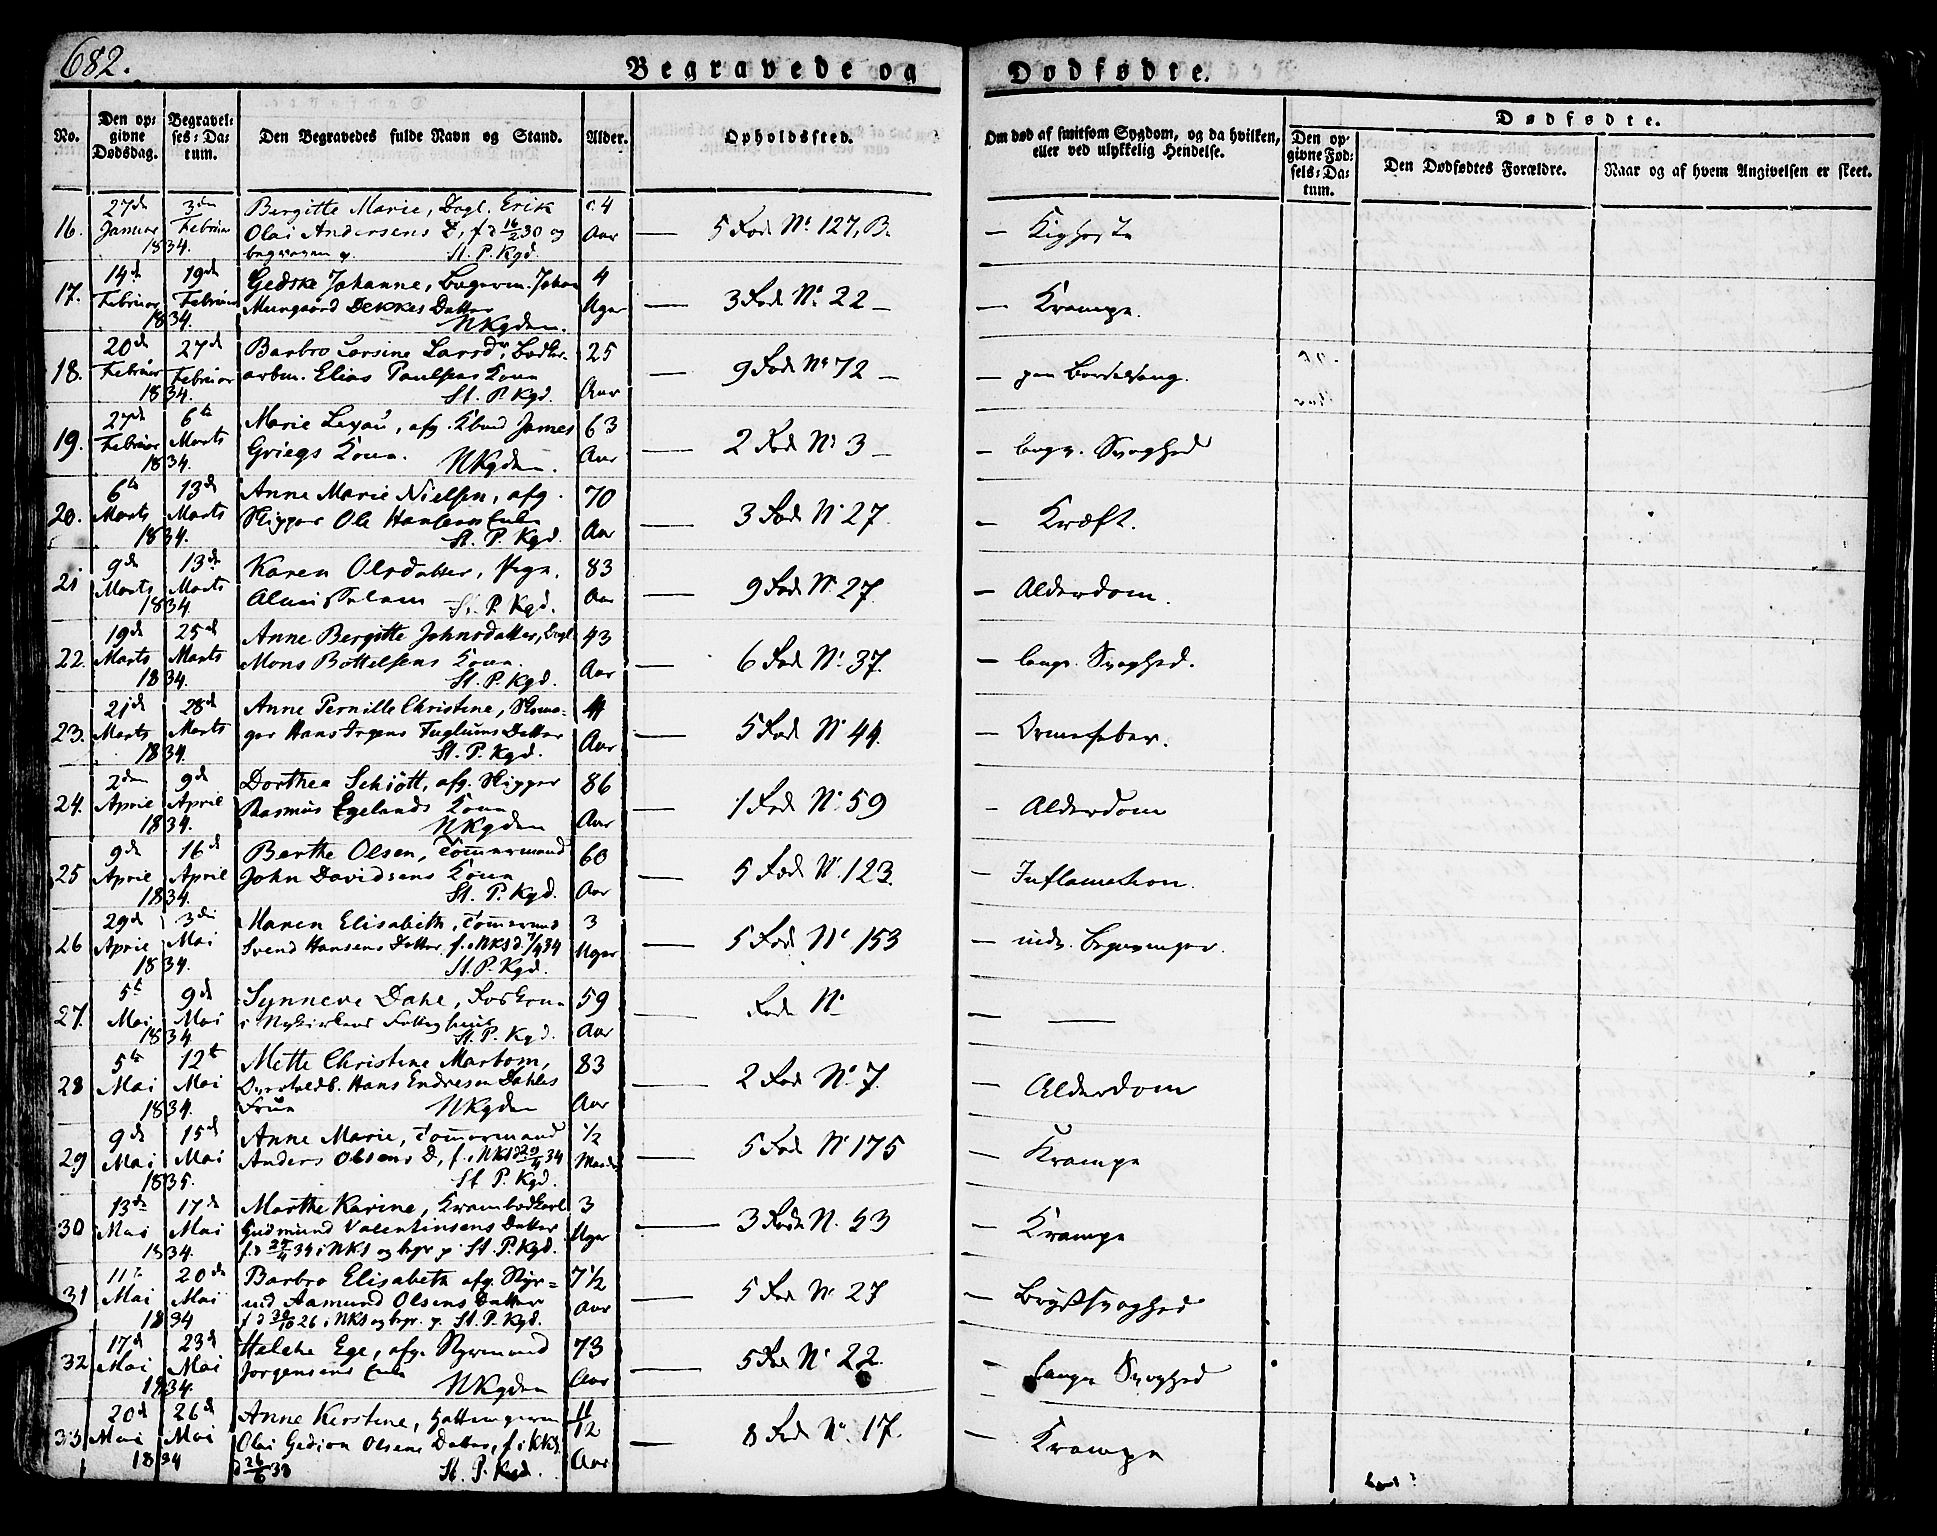 682.
Begravede og Dødfødte.
No.
Den opgivne Dødsdag.
Begravelses-Datum.
Den Begravedes fulde Navn og Stand.
Alder.
Opholdssted.
Om død af smitsom Sygdom, og da hvilken, eller ved ulykkelig Hendelse.
Dødfødte.
Den opgivne Fødsels-Datum.
Den Dødfødtes Forældre.
Naar og af hvem Angivelsen er skeet.
16. 27de Januar 3die Februar 1834. Bergitte Marie, Dagl. Erik
Olai Andersens D, f. d 16/2 30 og
St. P. Kgd. 4 Aar — 5 Rode No 127, B. — Kighoste
17. 14de Februar 19de Februar 1834. Gedske Johanne, Johan
Dekkes Datter
NKgden. 4 Uger — 3 Rode No 22 — Krampe.
18. 20de Februar 27de Februar 1834. Barbro Larsine Larsdr,
arbm. Elias Paulsens Kone
St. P. Kgd. 25 Aar — 9 Rode No 72 — paa Barselseng.
19. 27de Februar 6te Marts 1834. Marie, afg. Kbmd James
Griegs Kone. NKgden. 63 Aar — 2 Rode No 3 — langv. Svaghed
20. 6te Marts 13de Marts 1834. Anne Marie Nielsen, afg.
Skipper Ole Hansens Enke
St. P. Kgd. 70 Aar — 3 Rode No 27. — Kræft.
21 9de Marts 13de Marts 1834. Karen Olsdatter, Pige,
Almisselem St. P. Kgd. 83 Aar — 9 Rode No 27. — Alderdom.
22. 19de Marts 25de Marts 1834. Anne Bergitte Johnsdatter, Dagl
Mons Bottelsens Kone.
St. P. Kgd. 43 Aar — 6 Rode No 37. — langv. Svaghed.
23. 21de Marts 28de Marts 1834. Anne Pernille Christine, Skoma-
ger Hans Datter
St. P. Kgd. 4 Aar — 5 Rode No 44. — Ormefeber.
24. 2den April 9de April 1834. Dorthea Schiött, afg. Skipper
Rasmus Egelands Kone
NKgden 86 Aar — 1 Rode No 59 — Alderdom
25 9de April 16de April 1834. Berthe Olsen, Tømmermand
John Davidsens Kone
St. P. Kgd. 60 Aar — 5 Rode No 123. — Inflamation.
26 29de April 3die Mai 1834. Maren Elisabeth, Tømmermand
Svend Hansens Datter, f. i NK d. 7/4 34
St. P. Kgd. 3 Uger — 5 Rode No 153 — indv.
27. 5te Mai 9de Mai 1834 Synneve Dahl,
i Nykirkens Fattighuus
St. P. Kgd. 59 Aar Rode No — —
28 5te Mai 12te Mai 1834. Mette Christine Martom,
Hans Endresen Dahles
Frue NKgden 83 Aar — 2 Rode No 7. — Alderdom
29 9de Mai 15de Mai 1835. Anne Marie, Tømmermand
Anders Olsens D, f. i NK d 29/4 34
St. P. Kgd. 1/2 Maaned — 5 Rode No 175 — Krampe
30 13de Mai 17de Mai 1834. Marthe Karine, Krambodkarl
Gudmund Valentinsens Datter
i NK og begr. p. St. P. Kgd. 3 Uger — 3 Rode No. 53 — Krampe
31 11te Mai 20de Mai 1834 Barbro Elisabeth afg. Styr-
md Aamund Olsens Datter
f d 30/10 26 i NK og begr. p. St. P. Kgd. 7 1/2 Aar — 5 Rode No 27 — Brystsvaghed
32 17de Mai 23de Mai 1834. Helche Ege, afg. Styrmand
Jørgensens Enke
NKgden 73 Aar — 5 Rode No 22. — langv. Svaghed
33 20de Mai 26de Mai 1834 Anne Kirstine,
Olai Gedion Olsens Datter, f. i
St. P. Kgd. 11/12 Aar — 8 Rode No. 17. — Krampe